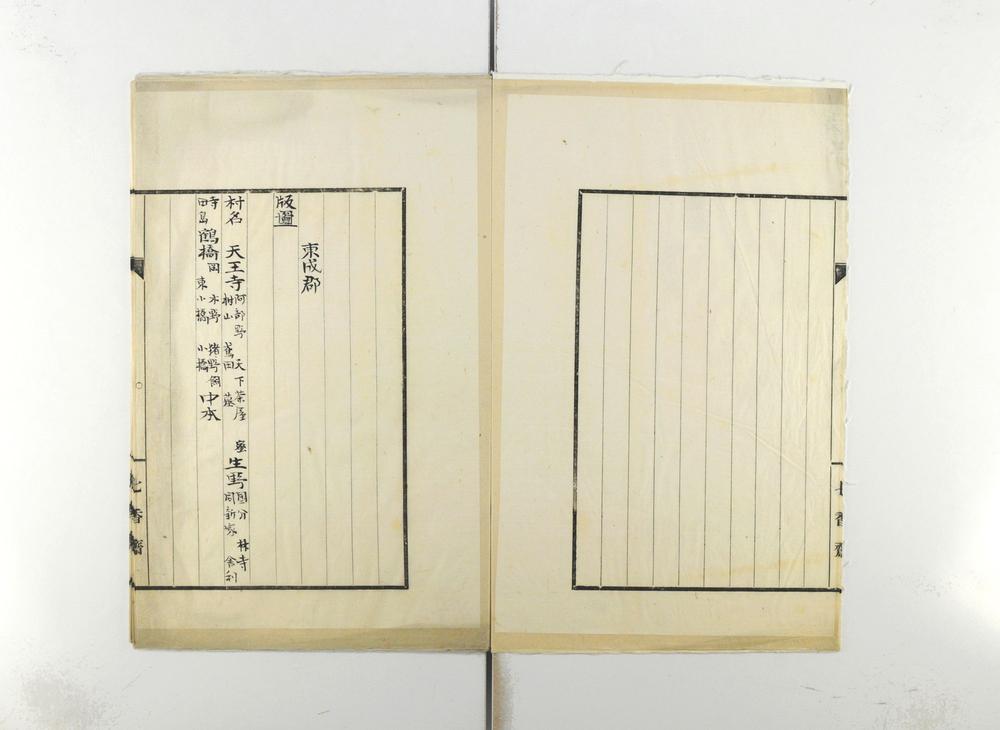 東成郡
版圖
村名 天王寺 阿部野 天下茶屋
村山 鳶田 生野 國分 林寺
同新家 舎利
寺
田島 鶴橋 岡 木野 猪野飼
東小橋 小橋 中本
七香齋
七香齋